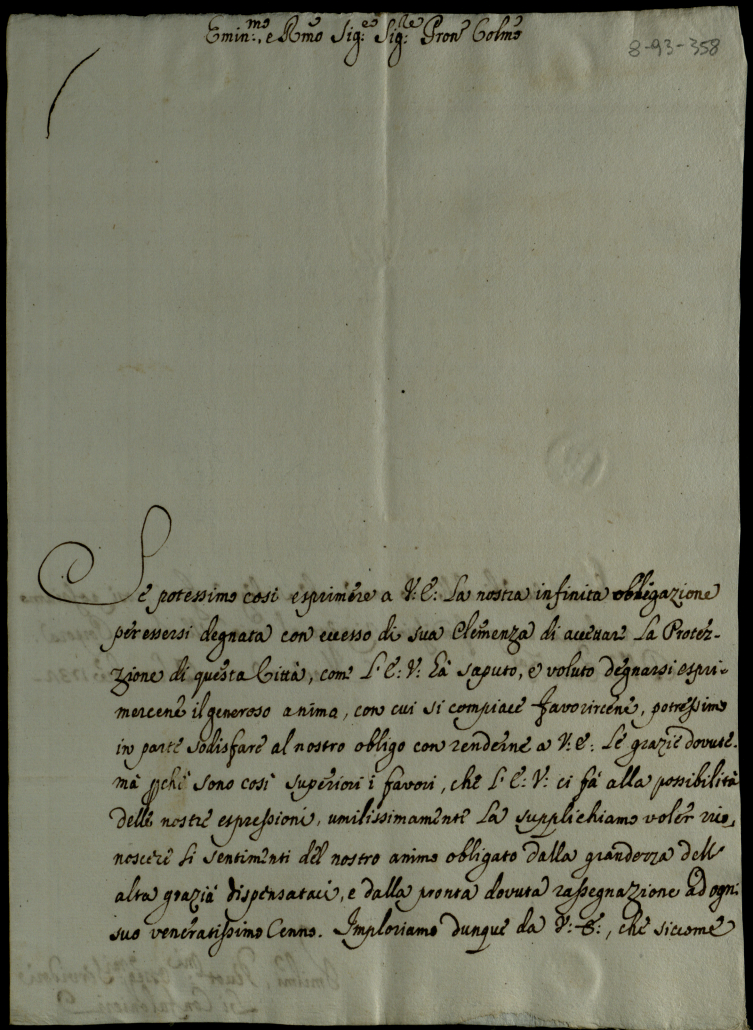 Emin:mo, e Rmo Sig:e Sig:re Pron Colmo
8-93-358
Se potessimo così esprimere a V: E: La nostra infinita obbligazione
per essersi degnata con eccesso di sua Clemenza di accettare La Protez-
zione di questa Città, come L' E: V: hà saputo, e voluto degnarsi espri-
mercene il generoso anima, con cui si compiace favorircene, potressimo
in parte sodisfare al nostro obligo con renderne a V: E: Le grazie dovute.
mà perche sono così superiori i favori, che L' E: V: ci fà alla possibilità
delle nostre espressioni, umilissimamente La supplichiamo voler rico,
noscere li sentimenti del nostro animo obligato dalla grandezza dell'
alta grazia dispensataci, e dalla pronta dovuta rassegnazione ad ogni
suo veneratissimo Cenno. Imploriamo dunque da V: E:, che siccome